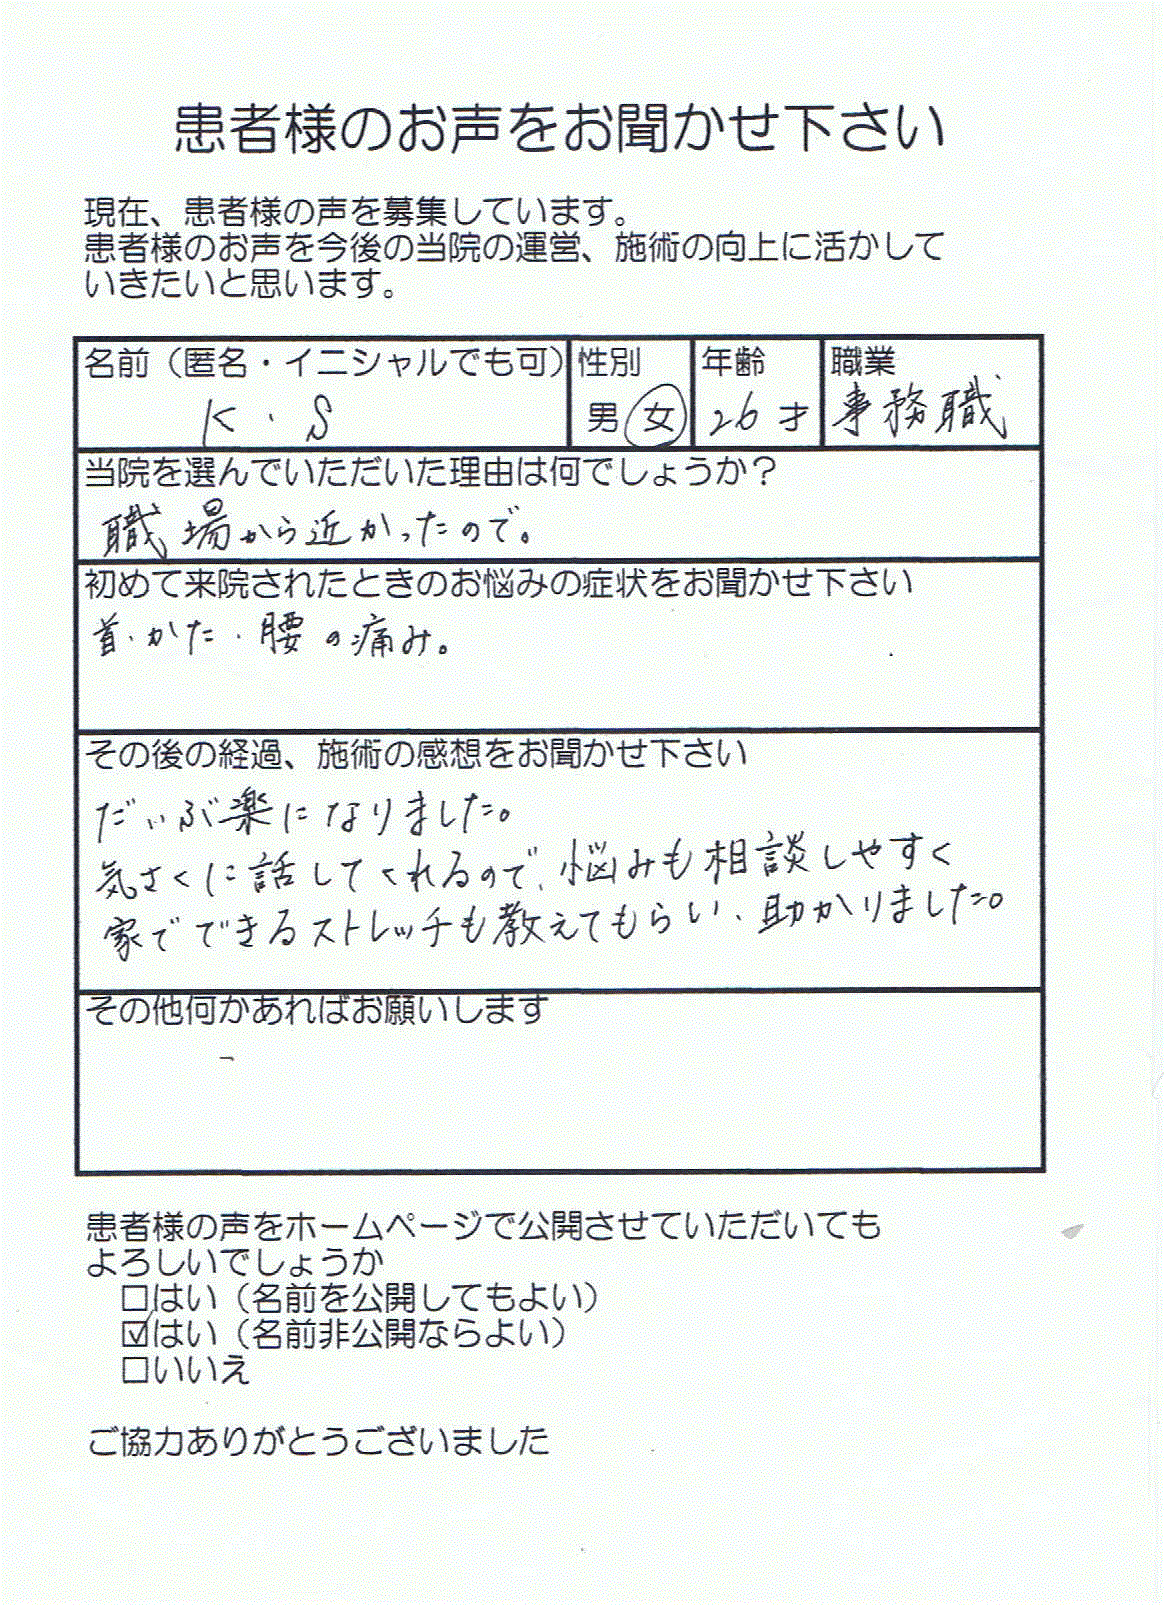 患者様のお声をお聞かせ下さい
現在、患者様の声を募集しています。
患者様のお声を今後の当院の運営、施術の向上に活かして
いきたいと思います。
名前（匿名・イニシャルでも可） 性別 年齢 職業
K・S 男 女 26才 事務職
当院を選んでいただいた理由は何でしょうか？
職場から近かったので。
初めて来院されたときのお悩みの症状をお聞かせ下さい
首・かた・腰の痛み。
その後の経過、施術の感想をお聞かせ下さい
だいぶ楽になりました。
気さくに話してくれるので、悩みも相談しやすく
家でできるストレッチも教えてもらい、助かりました。
その他何かあればお願いします
患者様の声をホームページで公開させていただいても
よろしいでしょうか
□はい（名前を公開してもよい）
☑はい（名前非公開ならよい）
□いいえ
ご協力ありがとうございました